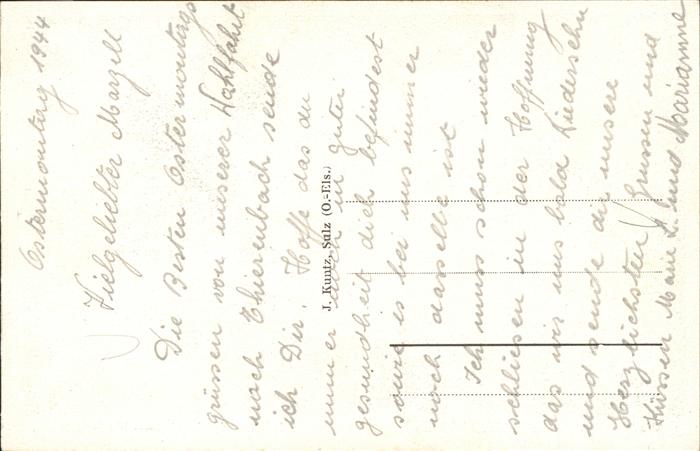 Ostermontag 1944
Vielgeliebter Marzell
Die Besten Ostermontags
grüssen von unserer Wahlfahrt
nach Thierenbach sende
ich Dir. Hoffe das du
immer noch in guter
gesundheit dich befindest
sowie es bei uns immer
noch dasselbe ist
Ich muss schon wieder
schliesen in der Hoffnung
das wir uns bald Wiedersehn
und sende dir unsere
Herzlichsten Grussen und
Küssen Mam L. und Marianne
J. Kuntz, Sulz (O.-Els.)